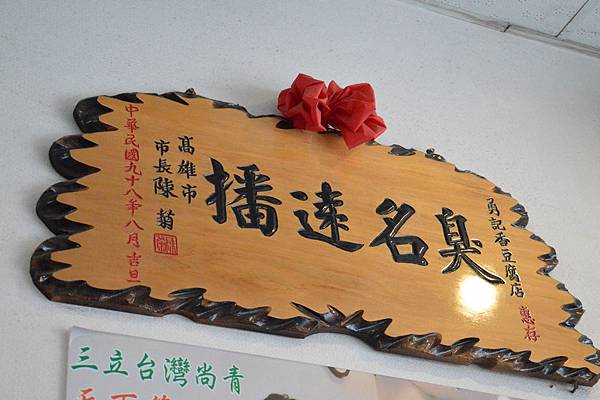 勇記香豆腐店 惠存
臭名遠播
高雄市
市長陳菊
中華民國九十八年八月吉旦
三立台灣尚青